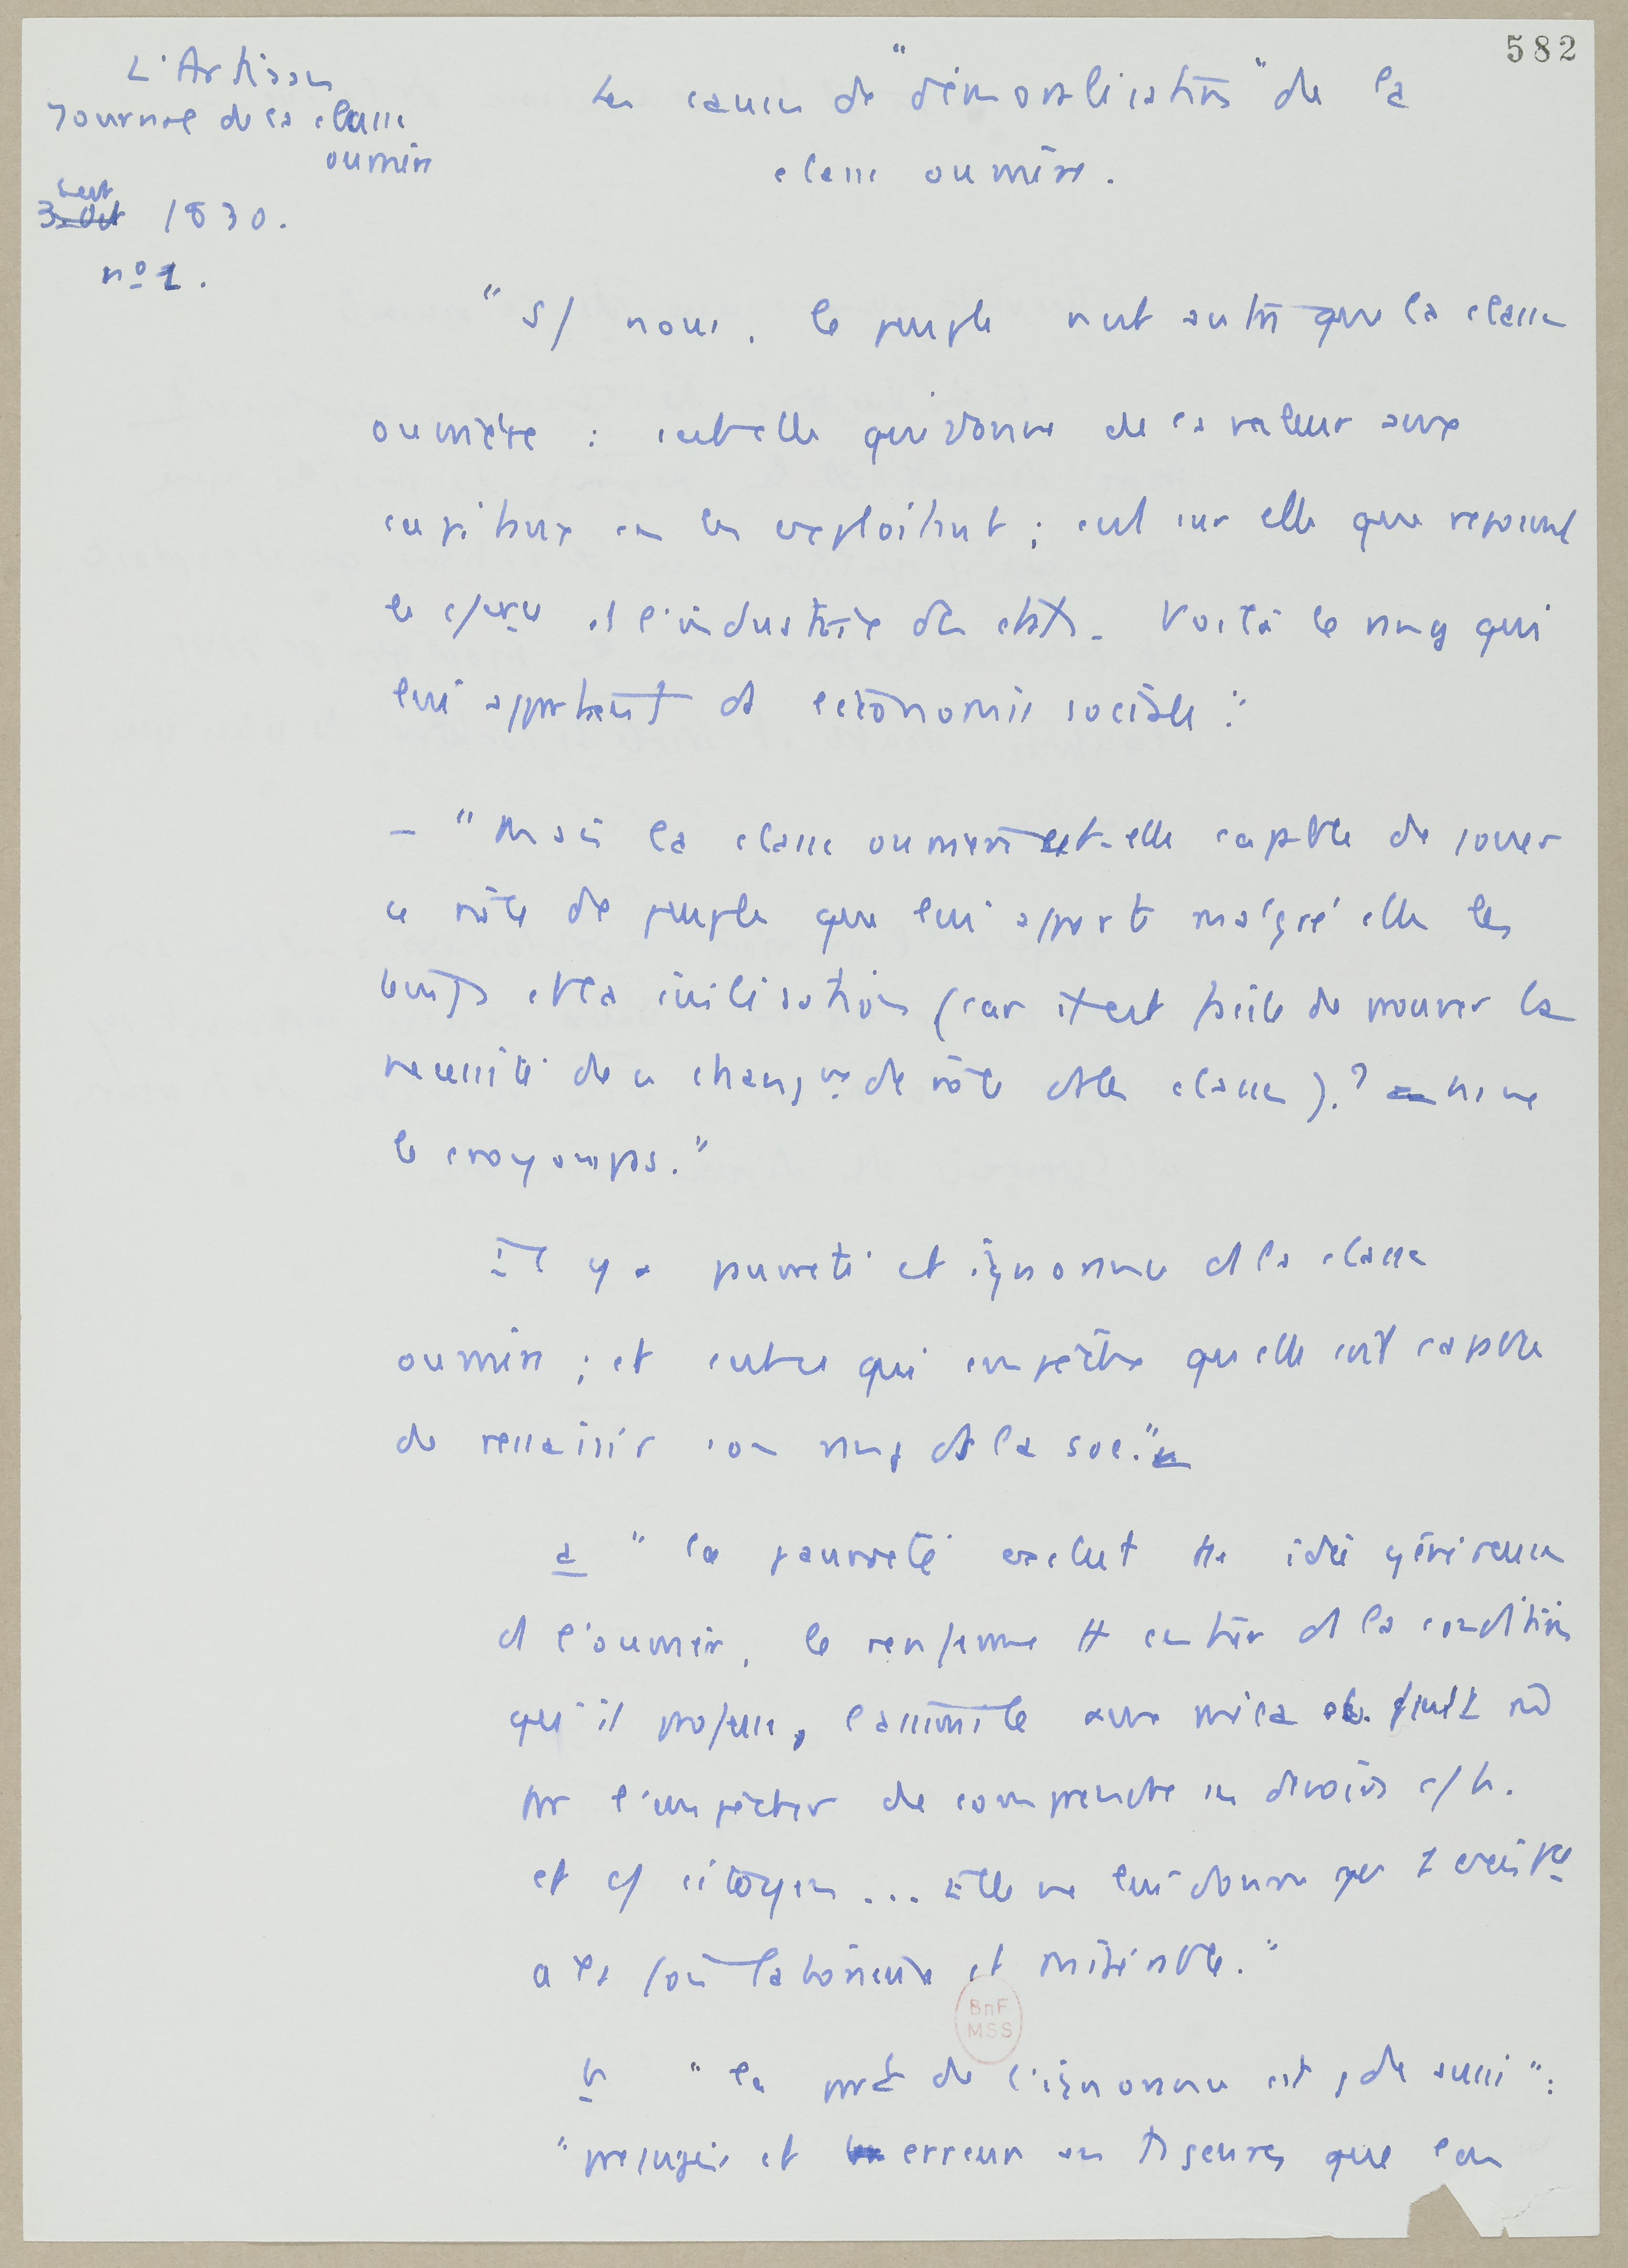 582
L'Artisan
Journal de la classe
ouvrière
3 Oct sept 1830.
n° 1.
Les causes de "démoralisation" de la
classe ouvrière.
"S/ nous, le peuple n'est autre que la classe
ouvrière : c'est elle qui donne de la valeur aux
capitaux en les exploitant ; c'est sur elle que reposent
le c/erce et l'industrie des états. Voilà le rang qui
lui appartient ds l'économie sociale."
- "Mais la classe ouvrière est-elle capable de jouer
ce rôle de peuple que lui apporte malgré elle les
temps et la civilisation (car il est facile de prouver la
nécessité de ce changt de rôle ds les classes) ? ns ne
le croyons pas."
Il y a pauvreté et ignorance ds la classe
ouvrière ; et c'est ce qui empêche qu'elle soit capable
de ressaisir son rang ds la soc."
a "la pauvreté exclut tte idée généreuse
ds l'ouvrier, le renferme tt entier ds la condition
qu'il professe, l'assimile
pr l'empêcher de comprendre ses devoirs c/ h.
et c/ citoyen... Elle ne lui donne que 1 existce
à la fois laborieuse et misérable."
b "la de l'ignorance est gde aussi" :
"préjugés et erreurs en ts genres que l'on
BnF
MSS